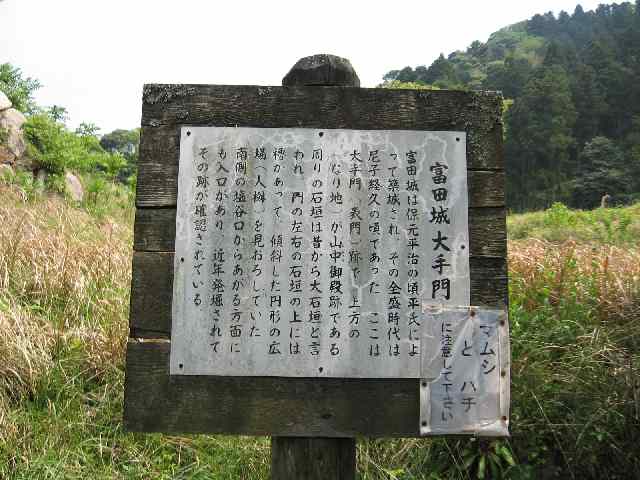 富田城大手門
富田城は保元平治の頃平氏によ
って築城され、その全盛時代は
尼子経久の頃であった。ここは
大手門(表門)跡で、上方の
(なり地)が山中御殿跡である
周りの石垣は昔から大石垣と言
われ、門の左右の石垣の上には
櫓があって、傾斜した円形の広
場(人桝)を見おろしていた
南側の塩谷口からあがる方面に
も入口があり、近年発掘されて
その跡が確認されている
マムシ
と ハチ
に注意して下さい